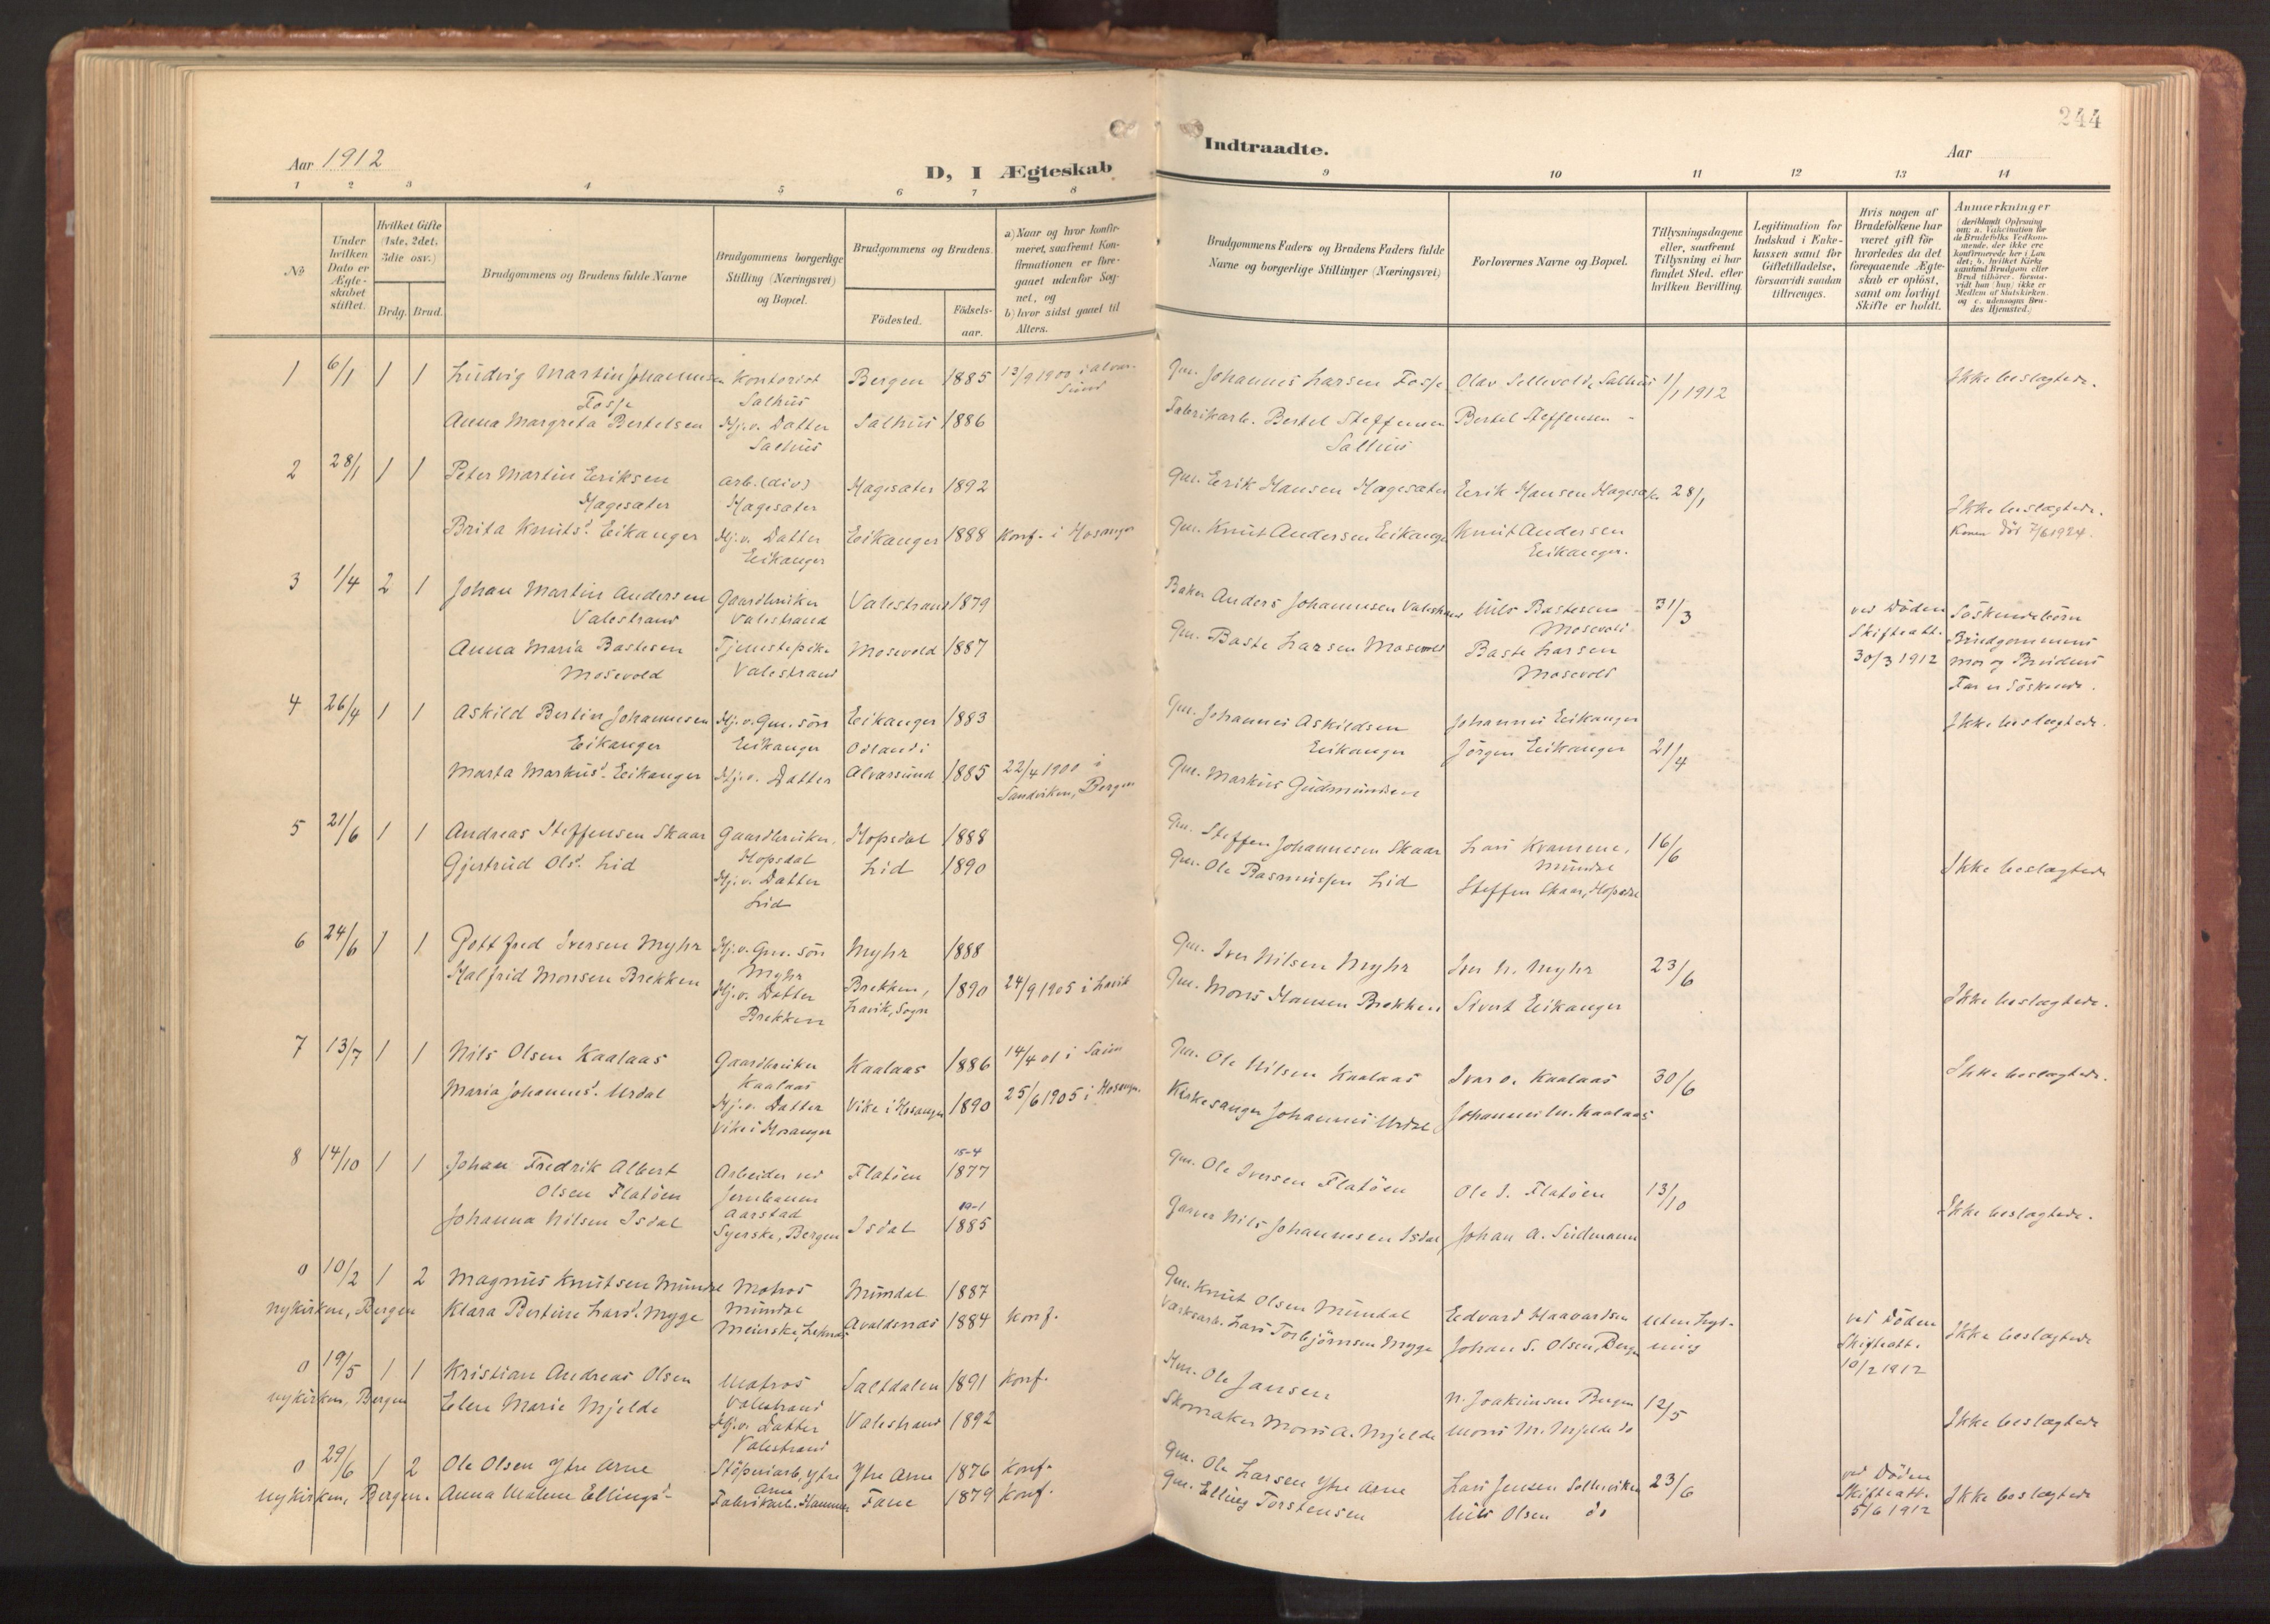 244
Aar 1912
D, I Ægteskab
Indtraadte.
Aar
1 2 3 4 5 6 7 8
9 10 11 12 13 14
№
Under hvilken Dato er Ægteskabet stiftet.
Hvilket Gifte (1ste, 2det, 3die osv.)
Brdg. Brud.
Brudgommens og Brudens fulde Navne
Brudgommens borgerlige Stilling (Næringsvei) og Bopæl.
Brudgommens og Brudens.
Födested.
Födsels-aar.
a) Naar og hvor konfirmeret, saafremt Konfirmationen er foregaaet udenfor Sognet, og
b) hvor sidst gaaet til Alters.
Brudgommens Faders og Brudens Faders fulde Navne og borgerlige Stillinger (Næringsvei)
Forlovernes Navne og Bopæl.
Tillysningsdagene eller, saafremt Tillysning ei har fundet Sted, efter hvilken Bevilling.
Legitimation for Indskud i Enkekassen samt for Giftetilladelse, forsaavidt saadan tiltrænges.
Hvis nogen af Brudefolkene har været gift för hvorledes da det foregaaende Ægteskab er oplöst, samt om lovligt Skifte er holdt.
Anmærkninger
1 6/1 1 1 Ludvig Martin Johannesen Kontorist Bergen 1885 13/9 1900 i Alver-
Fosse Salhus sund
Gm. Johannes Larsen Fosse Olav Sellevold, Salhus 1/1 1912 Ikke beslægtede.
Anna Margreta Bertelsen Hj.v. Datter Salhus 1886
Salhus
Fabrikarb. Bertel Steffensen Bertel Steffensen
Salhus
2 28/1 1 1 Peter Martin Eriksen arb. (div) Hagesæter 1892
Hagesæter Hagesæter
Gm. Erik Hansen Hagesæter Eerik Hansen Hagesæter 28/1
Brita Knutsd. Eikanger Hj.v. Datter Eikanger 1888 Konf. i Hosanger
Eikanger
Gm. Knut Andersen Eikanger Knut Andersen Ikke beslægtede.
Eikanger. Konen död 7/6 1924.
3 1/4 2 1 Johan Martin Andersen Gaardbruker Valestrand 1879
Valestrand Valestrand
Baker Anders Johannesen Valestrand Nils Bastesen 31/3 ved Döden Söskendebörn
Mosevold Skifteatt. Brudgommens
Anna Maria Bastesen Tjenestepike Mosevold 1887
Mosevold Valestrand
Gm. Baste Larsen Mosevold Baste Larsen 30/3 1912 mor og Brudens
Mosevold Far er Söskende.
4 26/4 1 1 Askild Bertin Johannesen Hj.v. Gm. sön Eikanger 1883
Eikanger Eikanger
Gm. Johannes Askildsen Johannes Eikanger Ikke beslægtede.
Eikanger Jörgen Eikanger 21/4
Marta Markusd. Eikanger Hj.v. Datter Odland i Alversund 1885 22/4 1900 i
Sandviken, Bergen
Gm. Markus Gudmundsen
5 21/6 1 1 Andreas Steffensen Skaar Gaardbruker, Hopsdal 1888
Hopsdal
Gm. Steffen Johannesen Skaar Lars Kvamme, 16/6
Mundal
Gjertrud Olsd. Lid Hj.v. Datter Lid 1890
Lid
Gm. Ole Rasmussen Lid Steffen Skaar, Hopsdal Ikke beslægtede
6 24/6 1 1 Gottfred Iversen Myhr Hj.v. Gm. sön Myhr 1888
Myhr
Gm. Iver Nilsen Myhr Iver N. Myhr 23/6
Halfrid Monsen Brekken Hj.v. Datter Brekken, 1890 24/9 1905 i Lavik
Brekken Lavik, Sogn
Gm. Mons Hansen Brekken Sivert Eikanger Ikke beslægtede.
7 13/7 1 1 Nils Olsen Kaalaas Gaardbruker Kaalaas 1886 14/4 01 i Sæim
Kaalaas
Gm. Ole Nilsen Kaalaas Ivar O. Kaalaas 30/6 Ikke beslægtede.
Maria Johannesd. Urdal Hj.v. Datter Vike i Hosanger 1890 25/6 1905 i Hosanger.
Vike i Hosanger
Kirkesanger Johannes Urdal Johannes N. Kaalaas
8 14/10 1 1 Johan Fredrik Albert Arbeider ved Flatöen 15-4 1877
Olsen Flatöen Jernbanen
Aarstad
Gm. Ole Iversen Flatöen Ole I. Flatöen 13/10
Johanna Nilsen Isdal Syerske, Bergen Isdal 19-1 1885
Garver Nils Johannesen Isdal Johan A. Sudmann Ikke beslægtede.
0 10/2 1 2 Magnus Knutsen Mundal Matros Mundal 1887
Nykirken, Bergen Mundal
Gm. Knut Olsen Mundal Edvard Haavardsen uten Lys- ved Döden
Klara Bertine Larsd. Myge Meierske, Avaldsnæs 1884 Konf.
Verksarb. Lars Torbjörnsen Myge Johan S. Olsen, Bergen ning Skifteatt. 10/2 1912 Ikke beslægtede
0 19/5 1 1 Kristian Andreas Olsen Matros Saltdalen 1891 Konf.
Nykirken, Bergen Valestrand
Hm. Ole Jansen N. Joakimsen Bergen 12/5
Elen Marie Mjelde Hj.v. Datter Valestrand 1892
Valestrand
Skomaker Mons A. Mjelde Mons M. Mjelde do Ikke beslægtede
0 29/6 1 2 Ole Olsen Ytre Arne Stöperiarb, Ytre Arne Ytre Arne 1876 Konf.
Gm. Ole Larsen Ytre Arne Lars Jensen Solheimsviken 23/6 ved Döden
Nykirken, Bergen. Anna Malene Ellingsd. Fabrikarb. Hammer Fane 1879 Konf.
Gm. Elling Torstensen Nils Olsen do Skifteatt. 5/6 1912 Ikke beslægtede